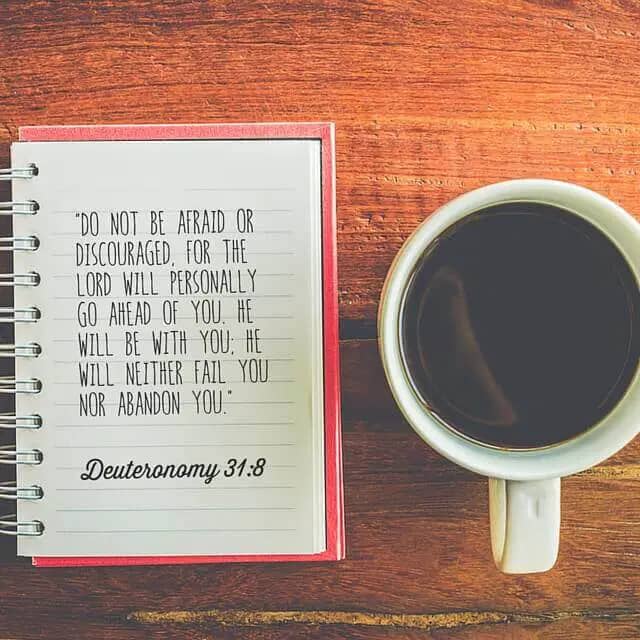 "DO NOT BE AFRAID OR
DISCOURAGED, FOR THE
LORD WILL PERSONALLY
GO AHEAD OF YOU. HE
WILL BE WITH YOU; HE
WILL NEITHER FAIL YOU
NOR ABANDON YOU."
Deuteronomy 31:8